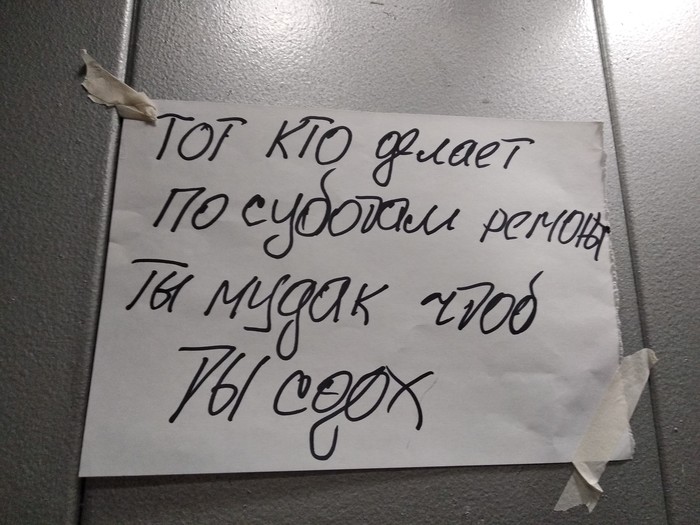 ТОТ КТО делает
по суботам ремонт
Ты мудак чтоб
ты сдох